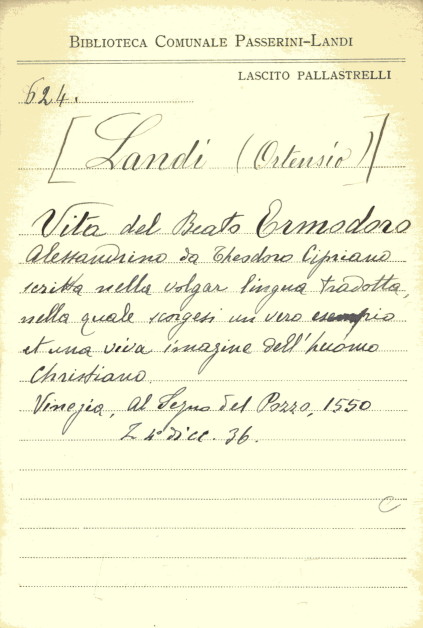 BIBLIOTECA COMUNALE PASSERINI-LANDI
LASCITO PALLASTRELLI
624.
[Landi (Ortensio)]
Vita del Beato Ermodoro
Alessandrino da Theodoro Cipriano
scritta nella volgar lingua tradotta,
nella quale scorgesi un vero esempio
et una viva imagine dell'huomo
Christiano.
Vinegia, al Segno del Pozzo, 1550
Z 4° di cc. 36.
C